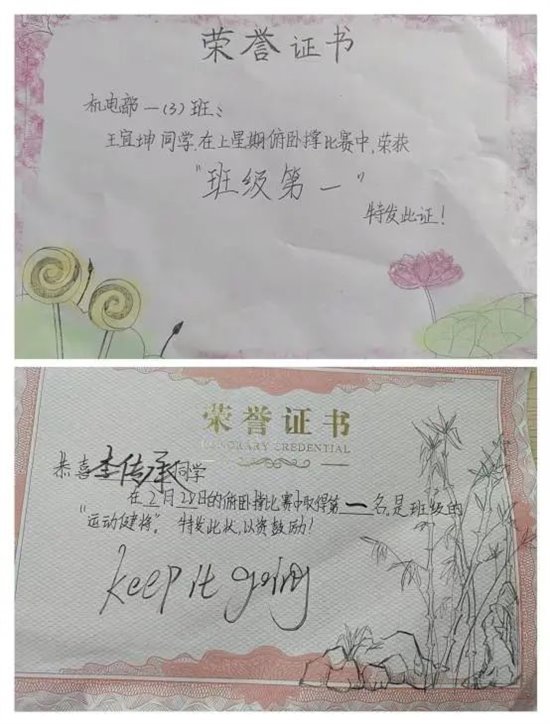 荣誉证书
机电部一(3)班:
王宜坤同学,在上星期俯卧撑比赛中,荣获
"班级第一"
特发此证!
荣誉证书
HONORARY CREDENTIAL
恭喜李传承同学
在2月28日的俯卧撑比赛中取得第一名,是班级的
"运动健将"。特发此状,以资鼓励!
keep it going